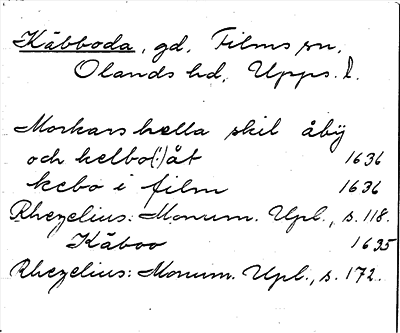 Käbboda, gd, Films sn,
Olands hd, Upps. l.
Morkars hella skil åbÿ
och kelbo(!)åt 1636
kebo i film 1636
Rhezelius: Monum. Upl., s. 118.
Käboo 1635
Rhezelius: Monum. Upl., s. 172.